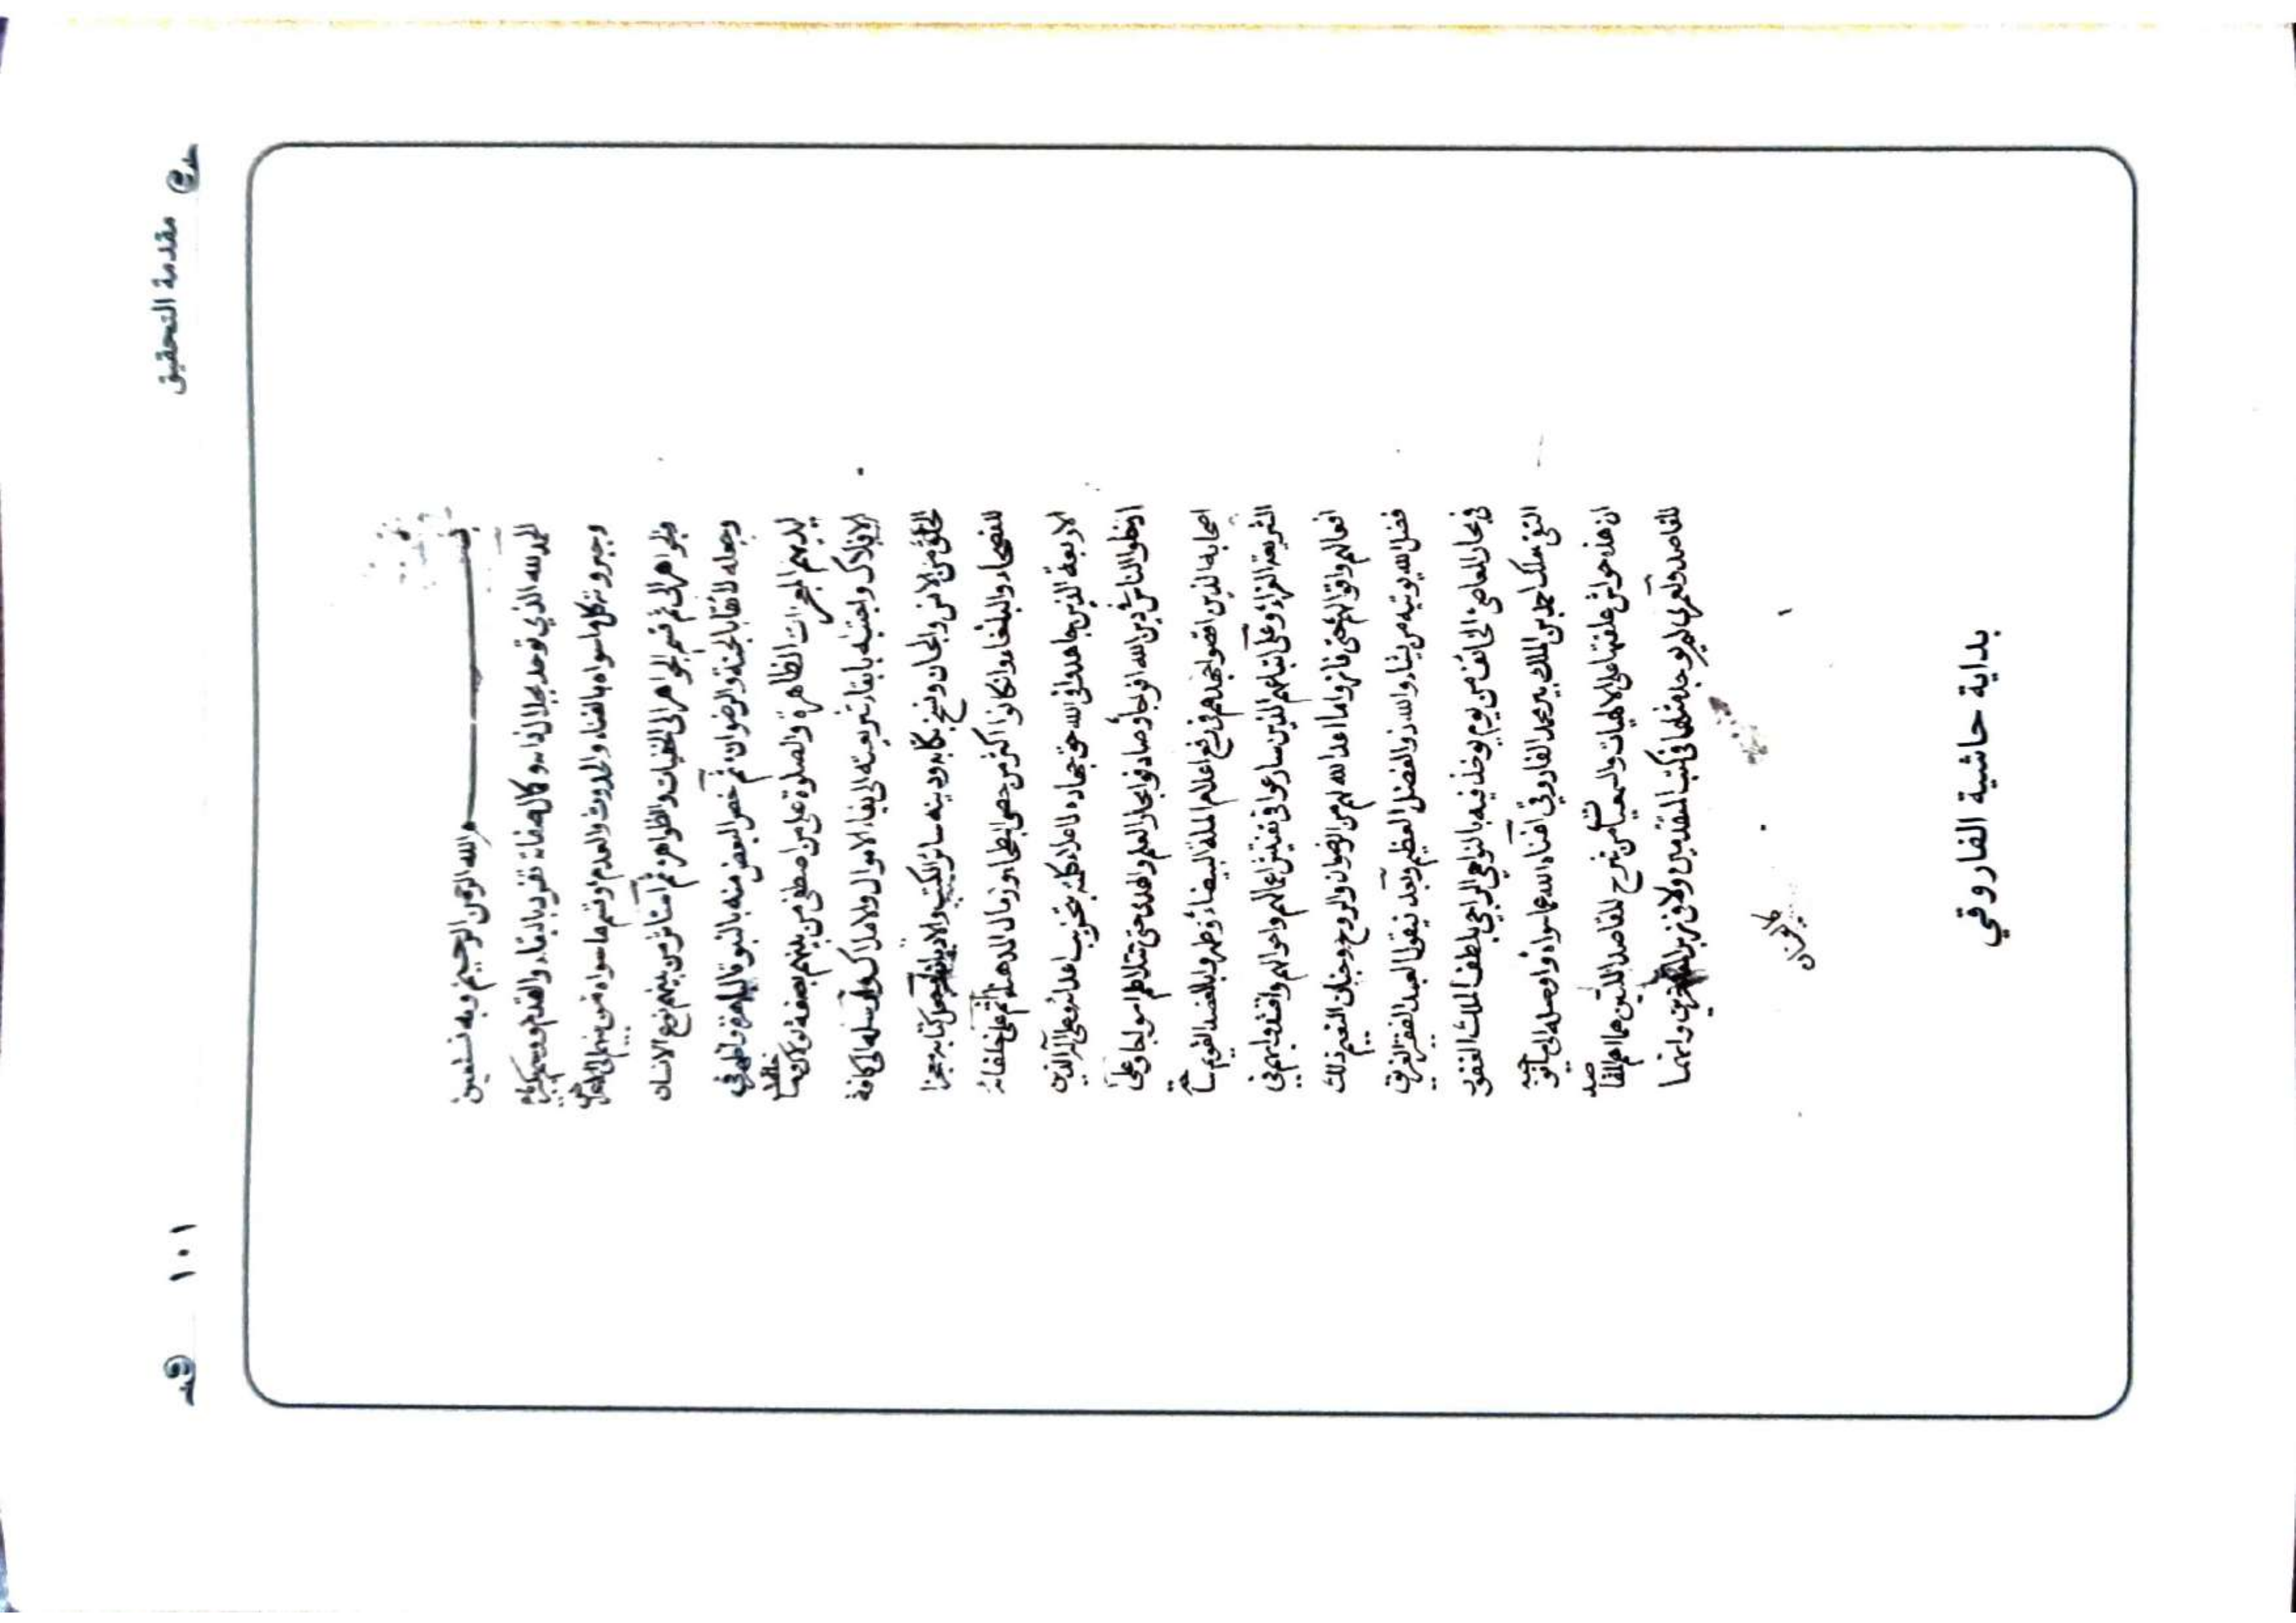 مقدمة التحقيق
١٠١
بسم الله الرحمن الرحيم وبه نستعين
الحمد لله الذي توحد بجلال ذاته وكمال صفاته تفرد بالبقاء والقدم
وجبروته كل ما سواه بالفناء والحدوث والعدم وقسم ما سواه من
والجواهر الى ثم قسم الجواهر الى الخفيات والظواهر ثم امتاز من بينهم نوع الانسان
وجعله لائقا بالجنة والرضوان ثم خص البعض منه بالنبوة
يديهم المعجزات الظاهرة والصلوة على من اصطفى من بينهم بصفة لولاك لما خلقت
الافلاك واجتباه بابقاء شريعته الى بقاء الاموال والاملاك وارسله الى كافة
الخلق من الانس والجان ونسخ بكتابه ودينه سائر الكتب والاديان كتابه معجزا
للفصحاء والبلغاء وان كانوا اكثر من حصى البطحاء ورمال الدهناء ثم على خلفائه
الاربعة الذين جاهدوا في الله حق جهاده لاعلاء كلمته بتخريب اعدائه وعلى آله الذين
ادخلوا الناس في دين الله افواجا وصادفوا بحار العلم والهدى حتى تتلاطم امواجا وعلى
اصحابه الذين اقصوا جهدهم في رفع اعلام الملة البيضاء وطهروا
الشريعة الغراء وعلى اتباعهم الذين سارعوا في تفتيش اعمالهم واحوالهم واقتفوا بهم في
افعالهم واقوالهم حتى فازوا ما اعد الله لهم من الرضوان والروح وجنات النعيم ذلك
فضل الله يوتيه من يشاء والله ذو الفضل العظيم وبعد فيقول العبد الفقير الغريق
في بحار المعاصي الخائف من يوم يوخذ فيه بالنواصي الراجي بلطف الملك الغفور
التقي ملك احمد بن الملك بير محمد الفاروقي افناه الله عما سواه واوصله الى ما
ان هذه حواش علقتها على الالهيات والسمعيات من شرح المقاصد اللتين هما اهم المقاصد
المقاصد ولعمري لم يوجد مثلها في كتب المتقدمين ولا في زبر وانهما
بداية حاشية الفاروقي